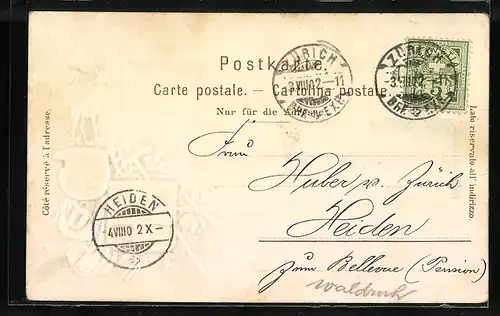 Postkarte.
Carte postale. — Cartolina postale.
Nur für die Adresse.
Côté réservé à l'adresse.
Lato riservato all' indirizzo.
ZÜRICH
3.VIII.02.-11
BRF. EXP.
ZÜRICH
3.VIII.02.-11
BRF. EXP.
5
HEIDEN
-4.VIII.02.X-
Frau
Huber v. Zürich
Heiden
zum Bellevue (Pension)